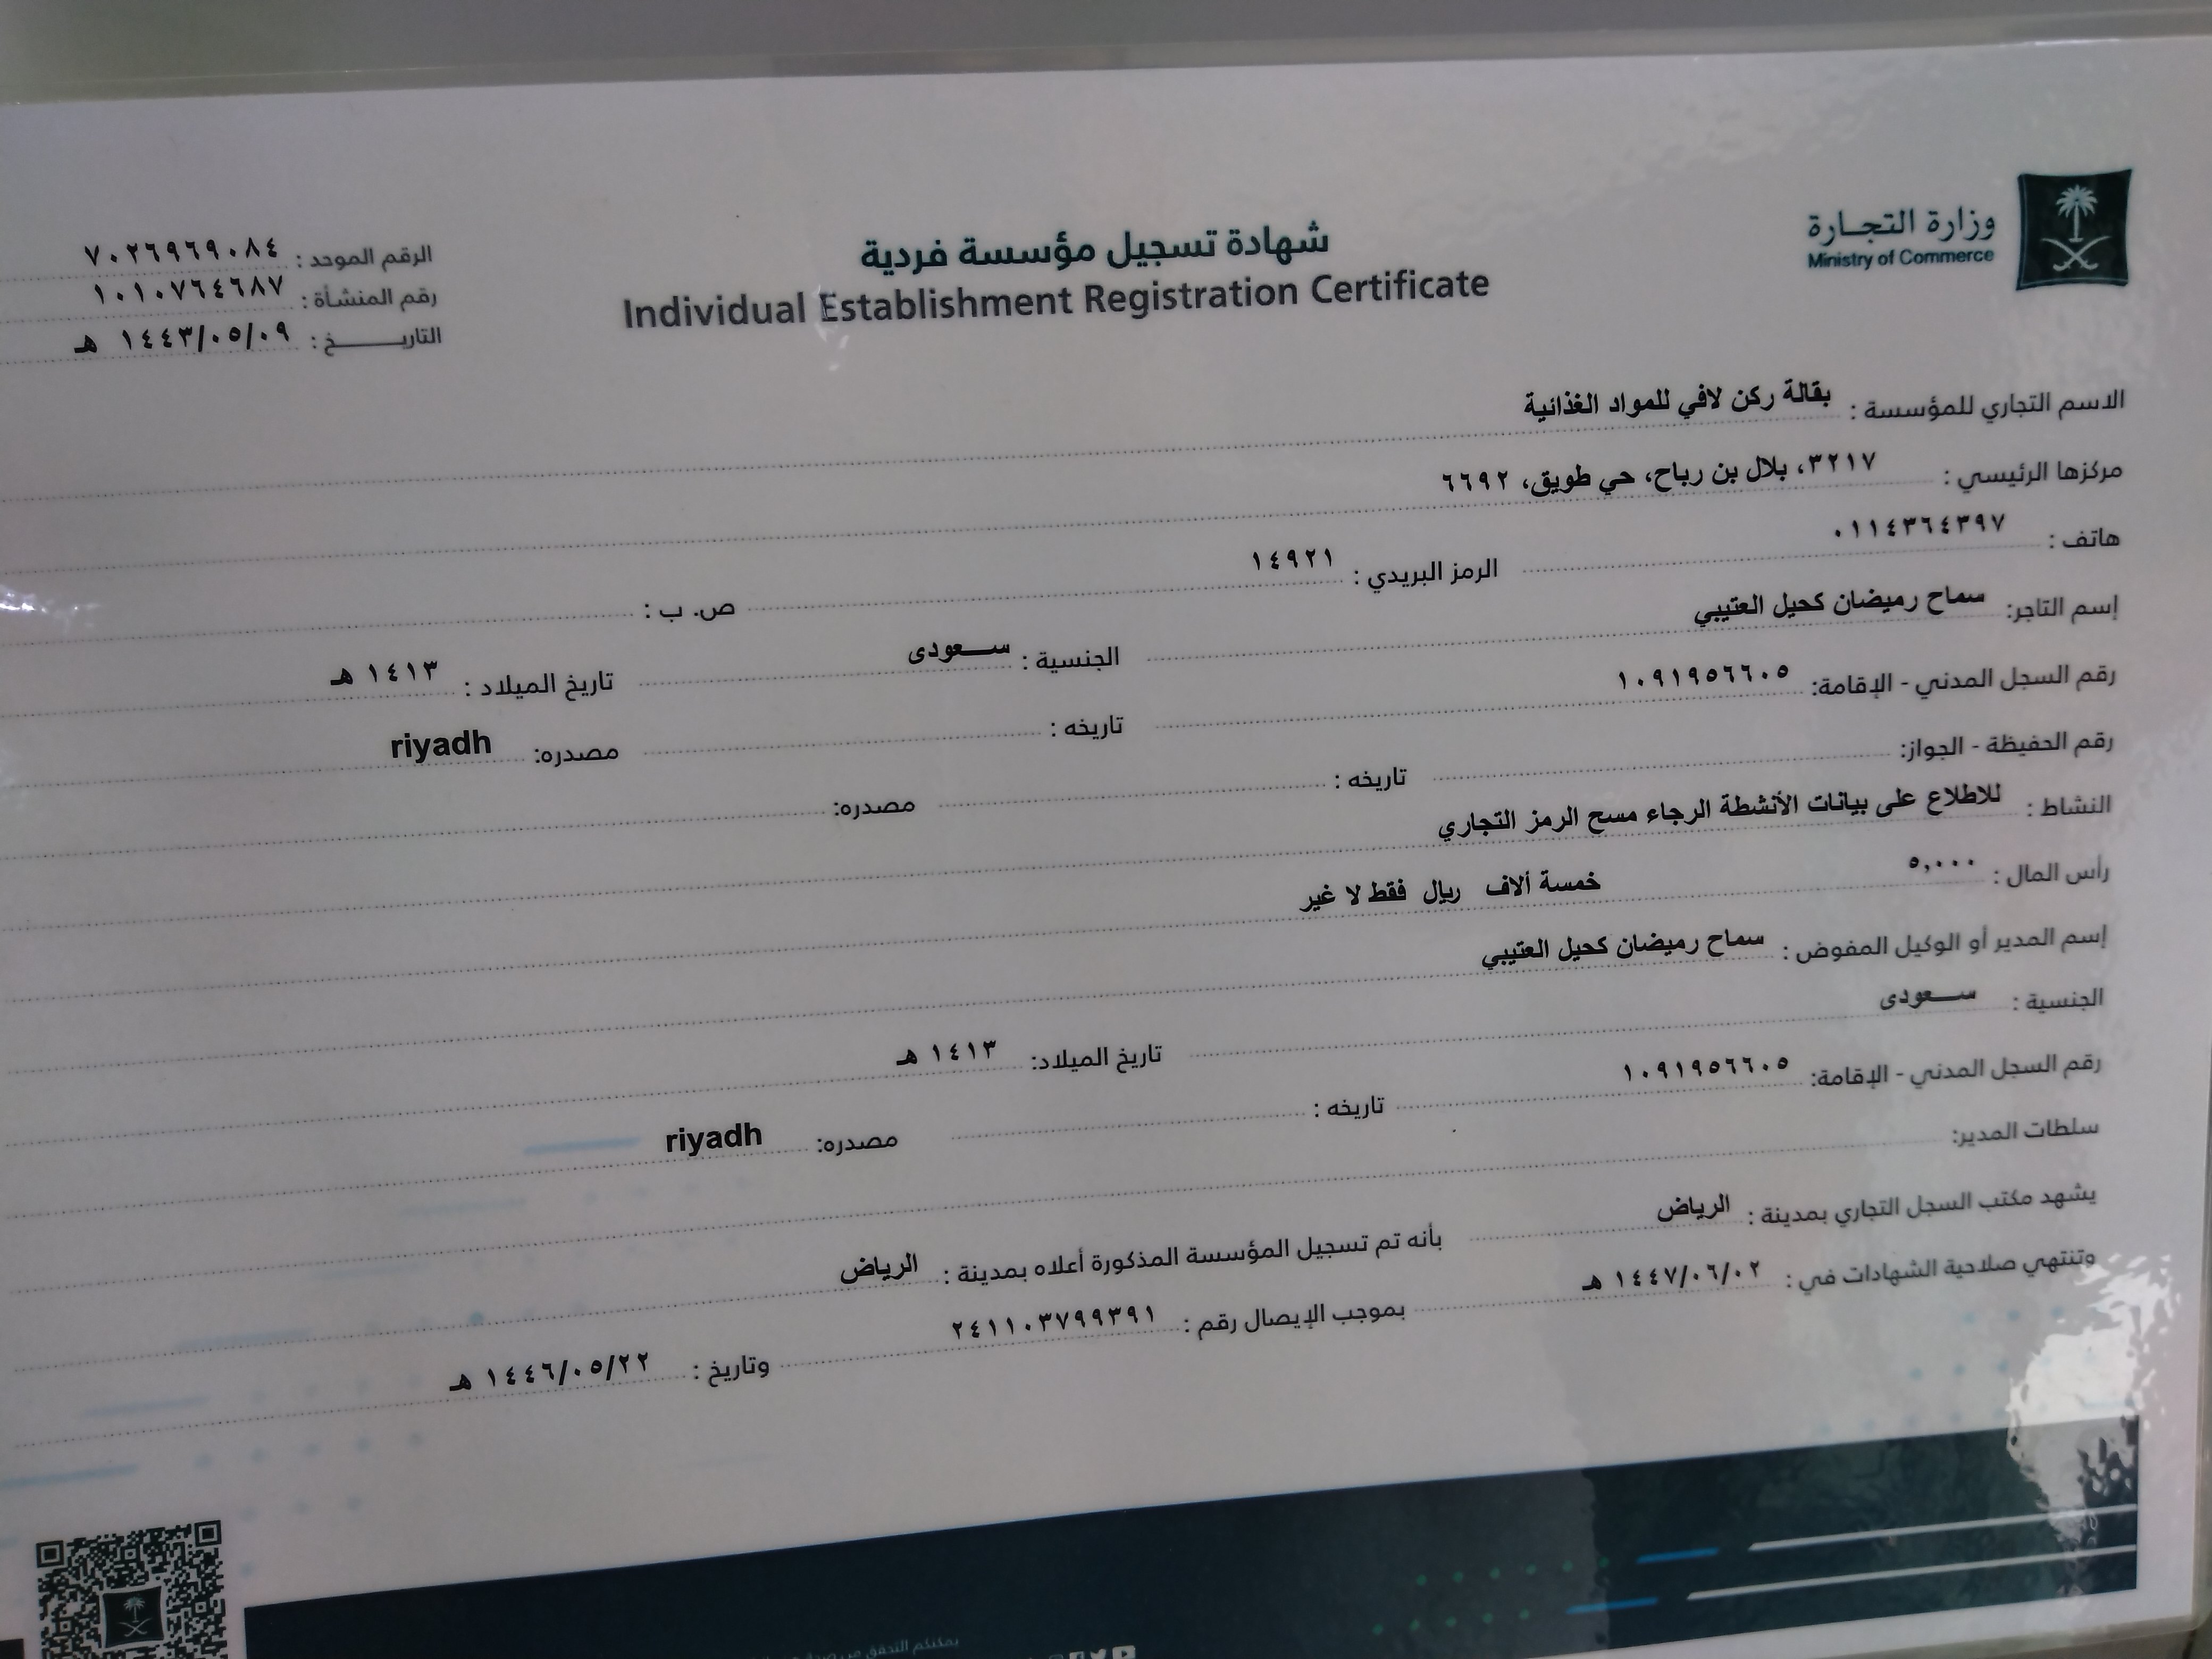 وزارة التجارة
Ministry of Commerce
شهادة تسجيل مؤسسة فردية
Individual Establishment Registration Certificate
الرقم الموحد : ٧٠٢٦٩٦٩٠٨٤
رقم المنشأة : ١٠١٠٧٦٤٦٨٧
التاريـــــــخ : ١٤٤٣/٠٥/٠٩ هـ
الاسم التجاري للمؤسسة : بقالة ركن لافي للمواد الغذائية
مركزها الرئيسي : ٣٢١٧، بلال بن رباح، حي طويق، ٦٦٩٢
هاتف : ٠١١٤٣٦٤٣٩٧ الرمز البريدي : ١٤٩٢١ ص. ب :
إسم التاجر: سماح رميضان كحيل العتيبي الجنسية : ســـعودى تاريخ الميلاد : ١٤١٣ هـ
رقم السجل المدني - الإقامة: ١٠٩١٩٥٦٦٠٥ تاريخه : مصدره: riyadh
رقم الحفيظة - الجواز: تاريخه : مصدره:
النشاط : للاطلاع على بيانات الأنشطة الرجاء مسح الرمز التجاري
رأس المال : ٥,٠٠٠ خمسة ألاف ريال فقط لا غير
إسم المدير أو الوكيل المفوض : سماح رميضان كحيل العتيبي
الجنسية : ســـعودى تاريخ الميلاد: ١٤١٣ هـ
رقم السجل المدني - الإقامة: ١٠٩١٩٥٦٦٠٥ تاريخه : مصدره: riyadh
سلطات المدير:
يشهد مكتب السجل التجاري بمدينة : الرياض بأنه تم تسجيل المؤسسة المذكورة أعلاه بمدينة : الرياض
وتنتهي صلاحية الشهادات في : ١٤٤٧/٠٦/٠٢ هـ بموجب الإيصال رقم : ٢٤١١٠٣٧٩٩٣٩١ وتاريخ : ١٤٤٦/٠٥/٢٢ هـ
يمكنكم التحقق من